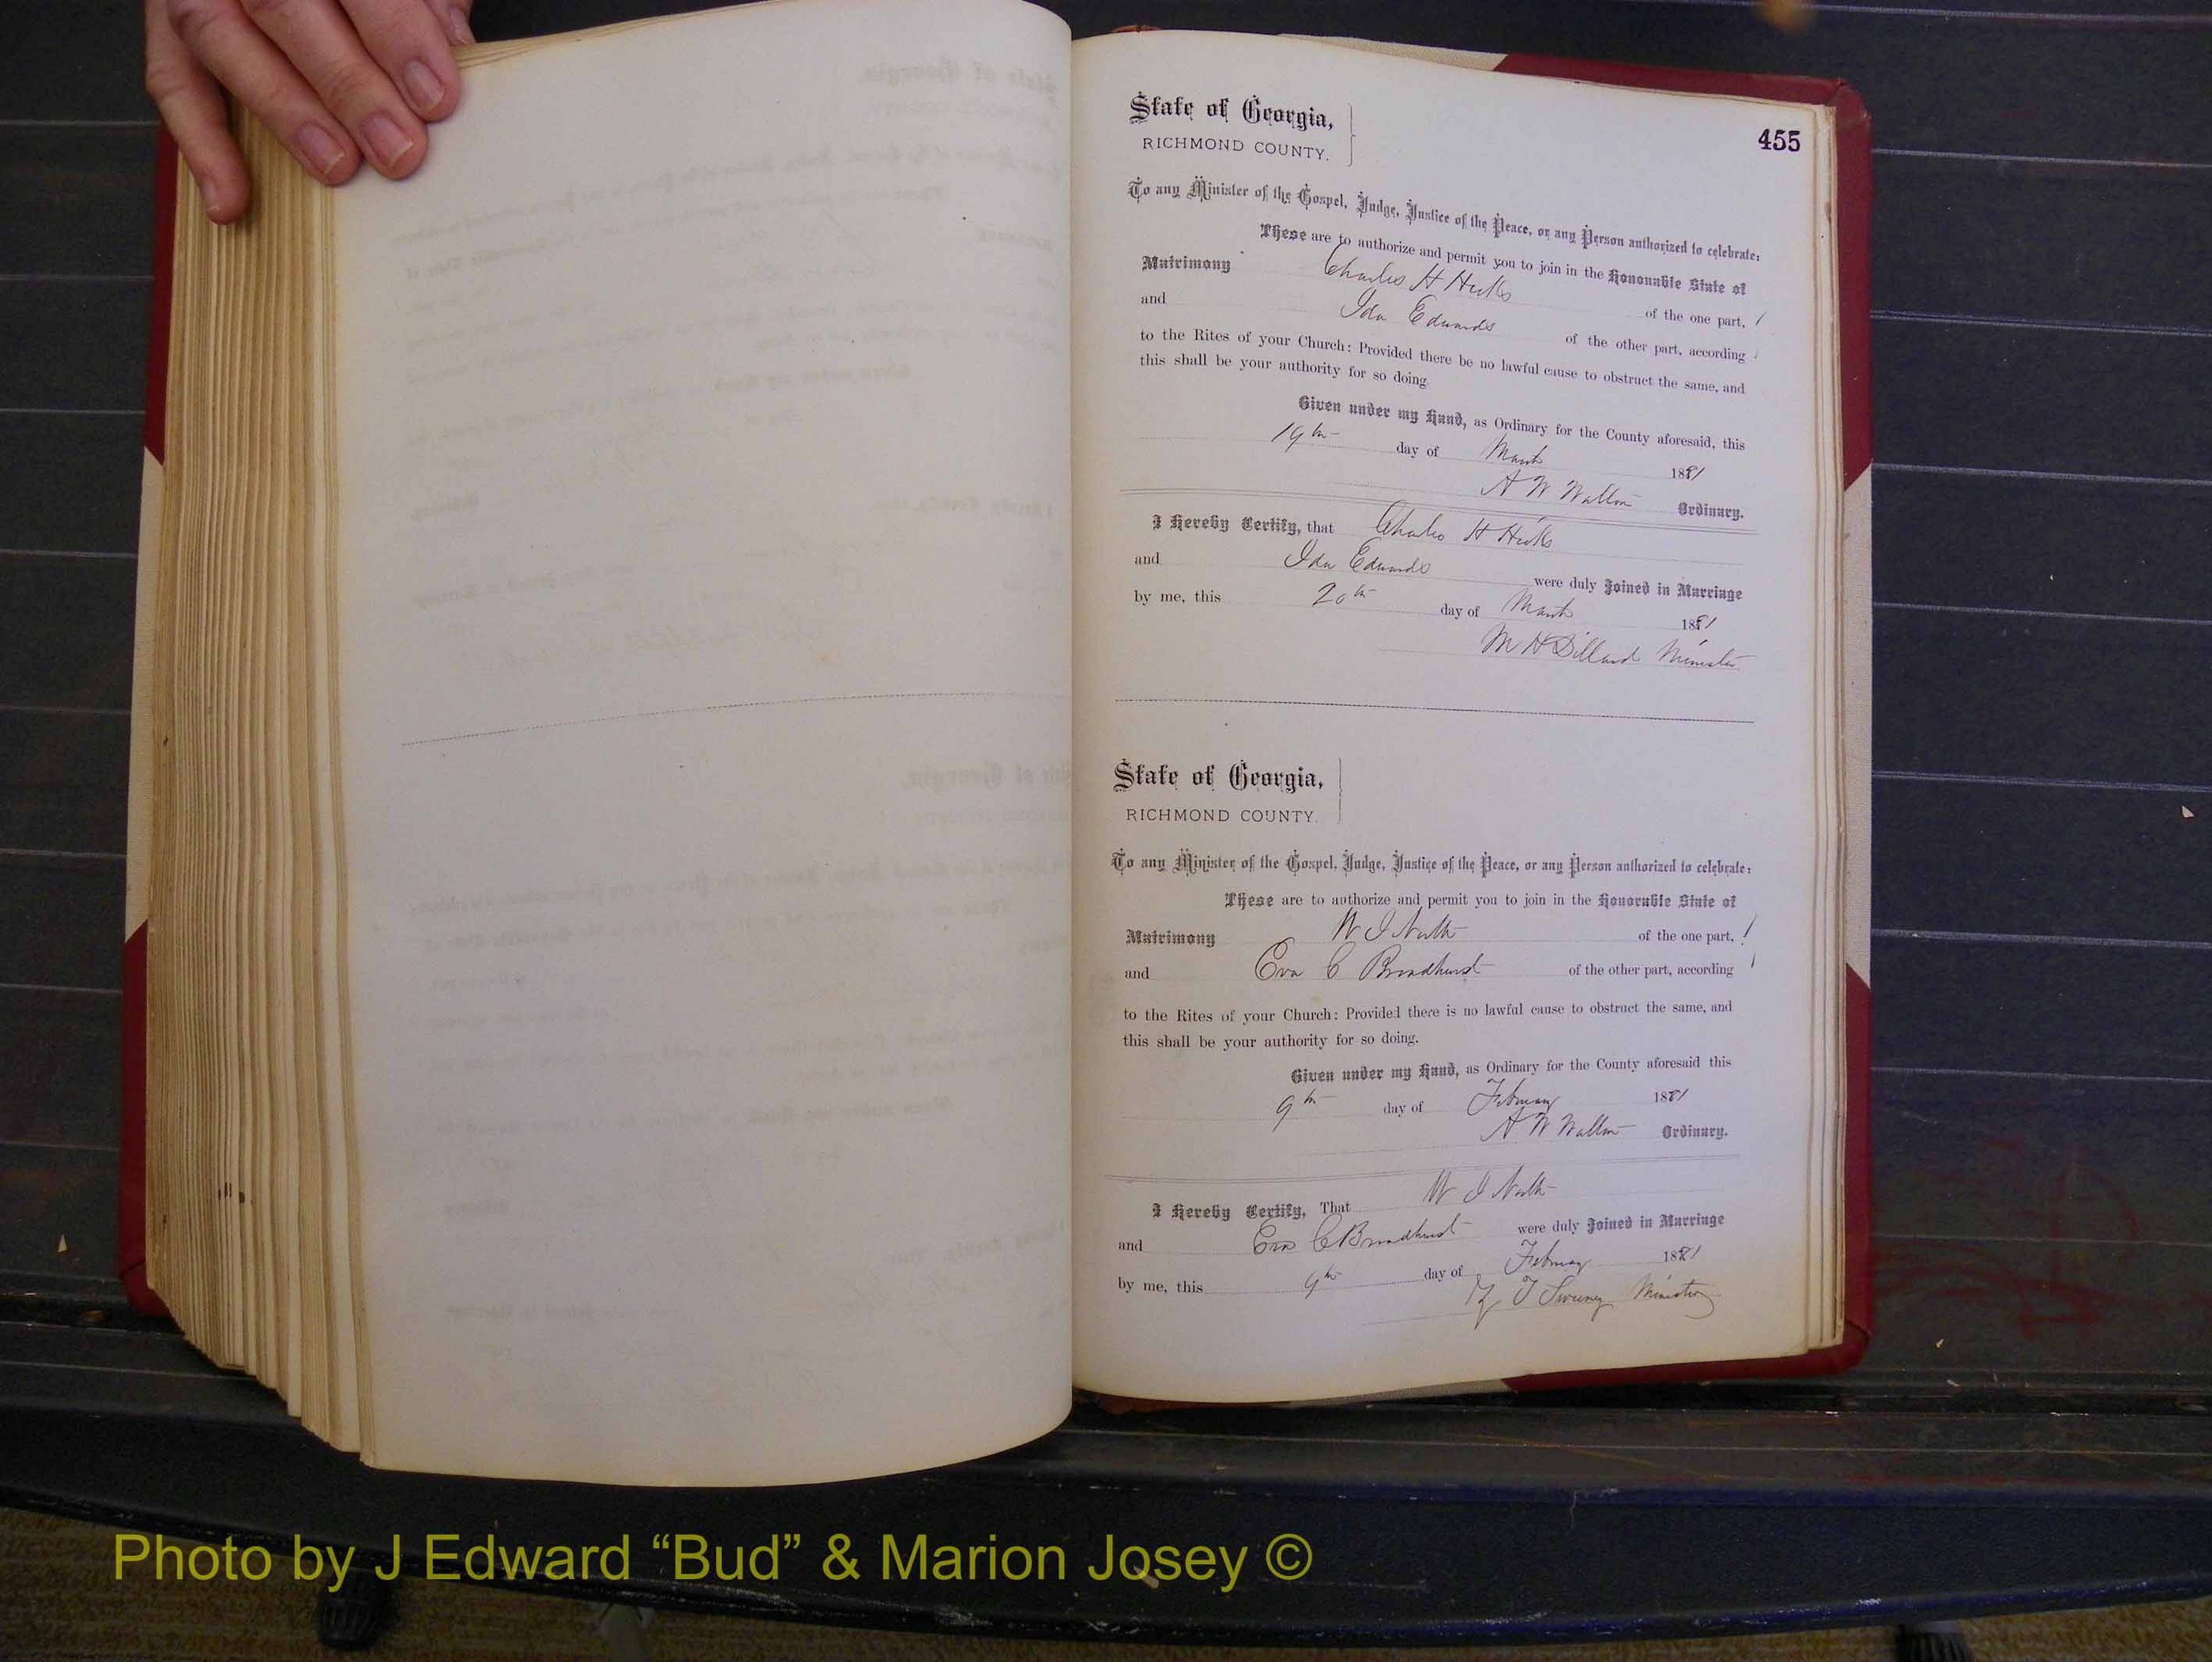 455
State of Georgia,
RICHMOND COUNTY.
To any Minister of the Gospel, Judge, Justice of the Peace, or any Person authorized to celebrate:
These are to authorize and permit you to join in the Honorable State of
Matrimony Charles H Hicks of the one part,
and Ida Edwards of the other part, according
to the Rites of your Church: Provided there be no lawful cause to obstruct the same, and
this shall be your authority for so doing.
Given under my Hand, as Ordinary for the County aforesaid, this
19th day of March 1881
A W Walton Ordinary.
I Hereby Certify, that Charles H Hicks
and Ida Edwards were duly Joined in Marriage
by me, this 20th day of March 1881
M H Dillard Minister
State of Georgia,
RICHMOND COUNTY.
To any Minister of the Gospel, Judge, Justice of the Peace, or any Person authorized to celebrate:
These are to authorize and permit you to join in the Honorable State of
Matrimony W J of the one part,
and Eva C Broadhurst of the other part, according
to the Rites of your Church: Provided there is no lawful cause to obstruct the same, and
this shall be your authority for so doing.
Given under my Hand, as Ordinary for the County aforesaid this
9th day of February 1881
A W Walton Ordinary.
I Hereby Certify, That W J
and Eva C Broadhurst were duly Joined in Marriage
by me, this 9th day of February 1881
Z T Sweeney Minister
Photo by J Edward “Bud” & Marion Josey ©